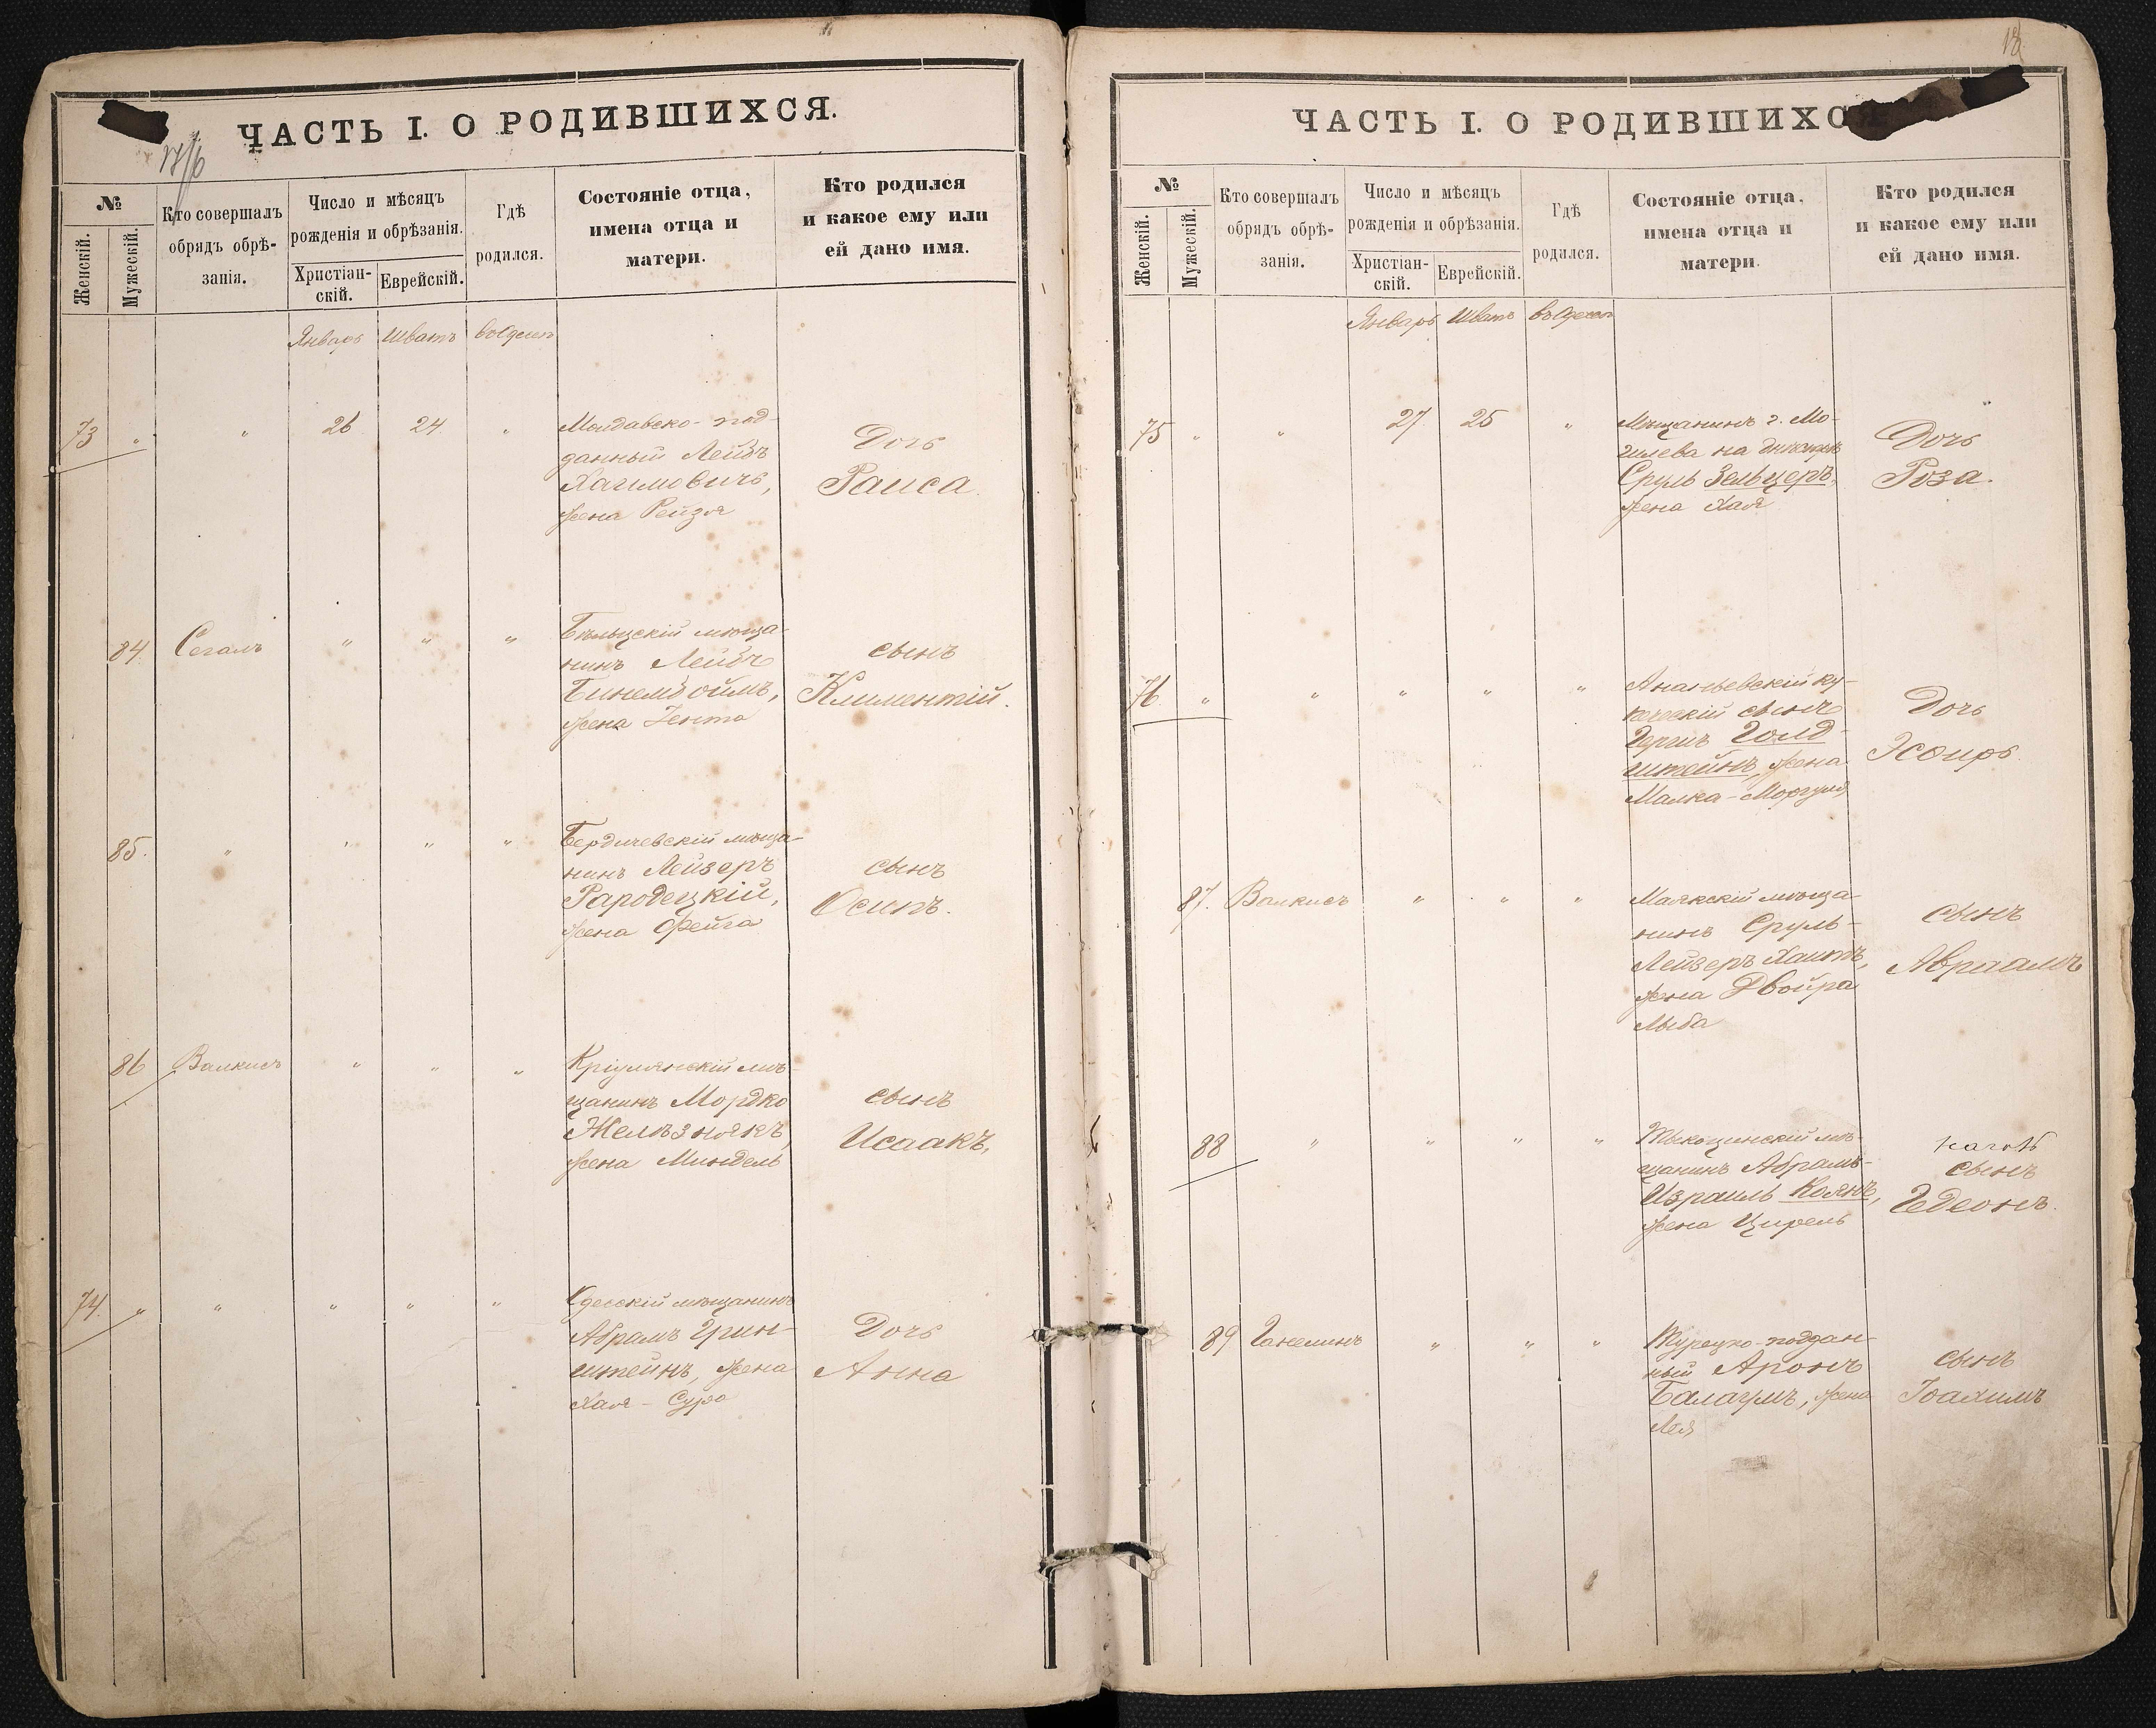 ЧАСТЬ I. О РОДИВШИХСЯ.
№
Женскій.
Мужескій.
Кто совершалъ
обрядъ обрѣ-
занія.
Число и мѣсяцъ
рожденія и обрѣзанія.
Христіан-
скій.
Еврейскій.
Гдѣ
родился.
Состояніе отца,
имена отца и
матери.
Кто родился
и какое ему или
ей дано имя.
Январь Шватъ въ Одессѣ
73 " " 26 24 "
Молдавско-под-
данный Лейбъ
Хаимовичъ,
жена Рейзя
Дочь
Раиса.
84. Сегалъ " " "
Бѣльцскій мѣща-
нинъ Лейбъ
жена Зента
сынъ
Климентій.
85. " " " "
Бердичевскій мѣща-
нинъ Лейзеръ
жена Фейга
сынъ
Осипъ.
86 Валкисъ " " "
Кріулянскій мѣ-
щанинъ Мордко
Желѣзнякъ,
жена Миндель
сынъ
Исаакъ,
74. " " " " "
Одесскій мѣщанинъ
Абрамъ Грин-
штейнъ, жена
Хая - Сура
Дочь
Анна
18
ЧАСТЬ I. О РОДИВШИХС
№
Женскій.
Мужескій.
Кто совершалъ
обрядъ обрѣ-
занія.
Число и мѣсяцъ
рожденія и обрѣзанія.
Христіан-
скій.
Еврейскій.
Гдѣ
родился.
Состояніе отца,
имена отца и
матери.
Кто родился
и какое ему или
ей дано имя.
Январь Шватъ въ Одессѣ
75 " " 27 25 "
Мѣщанинъ г. Мо-
гилева на Днѣстрѣ
Сруль Зельцеръ,
жена Хая
Дочь
Роза.
76. " " " " "
Ананьевскій ку-
печескій сынъ
Гершъ Голд-
штейнъ, жена
Малка-Моргуля
Дочь
Эсѳирь.
87. Валкисъ " " "
Маякскій мѣща-
нинъ Сруль-
Лейзеръ Хаитъ,
жена Двойра
Лыба
сынъ
Авраамъ
88 " " " "
Тыкоцинскій мѣ-
щанинъ Абрамъ-
Израиль Коянъ,
жена Цирель
сынъ
Гедеонъ.
89 Ганелинъ " " "
Турецко-поддан-
ный Аронъ
Балагулъ, жена
Лея
сынъ
Іоахимъ